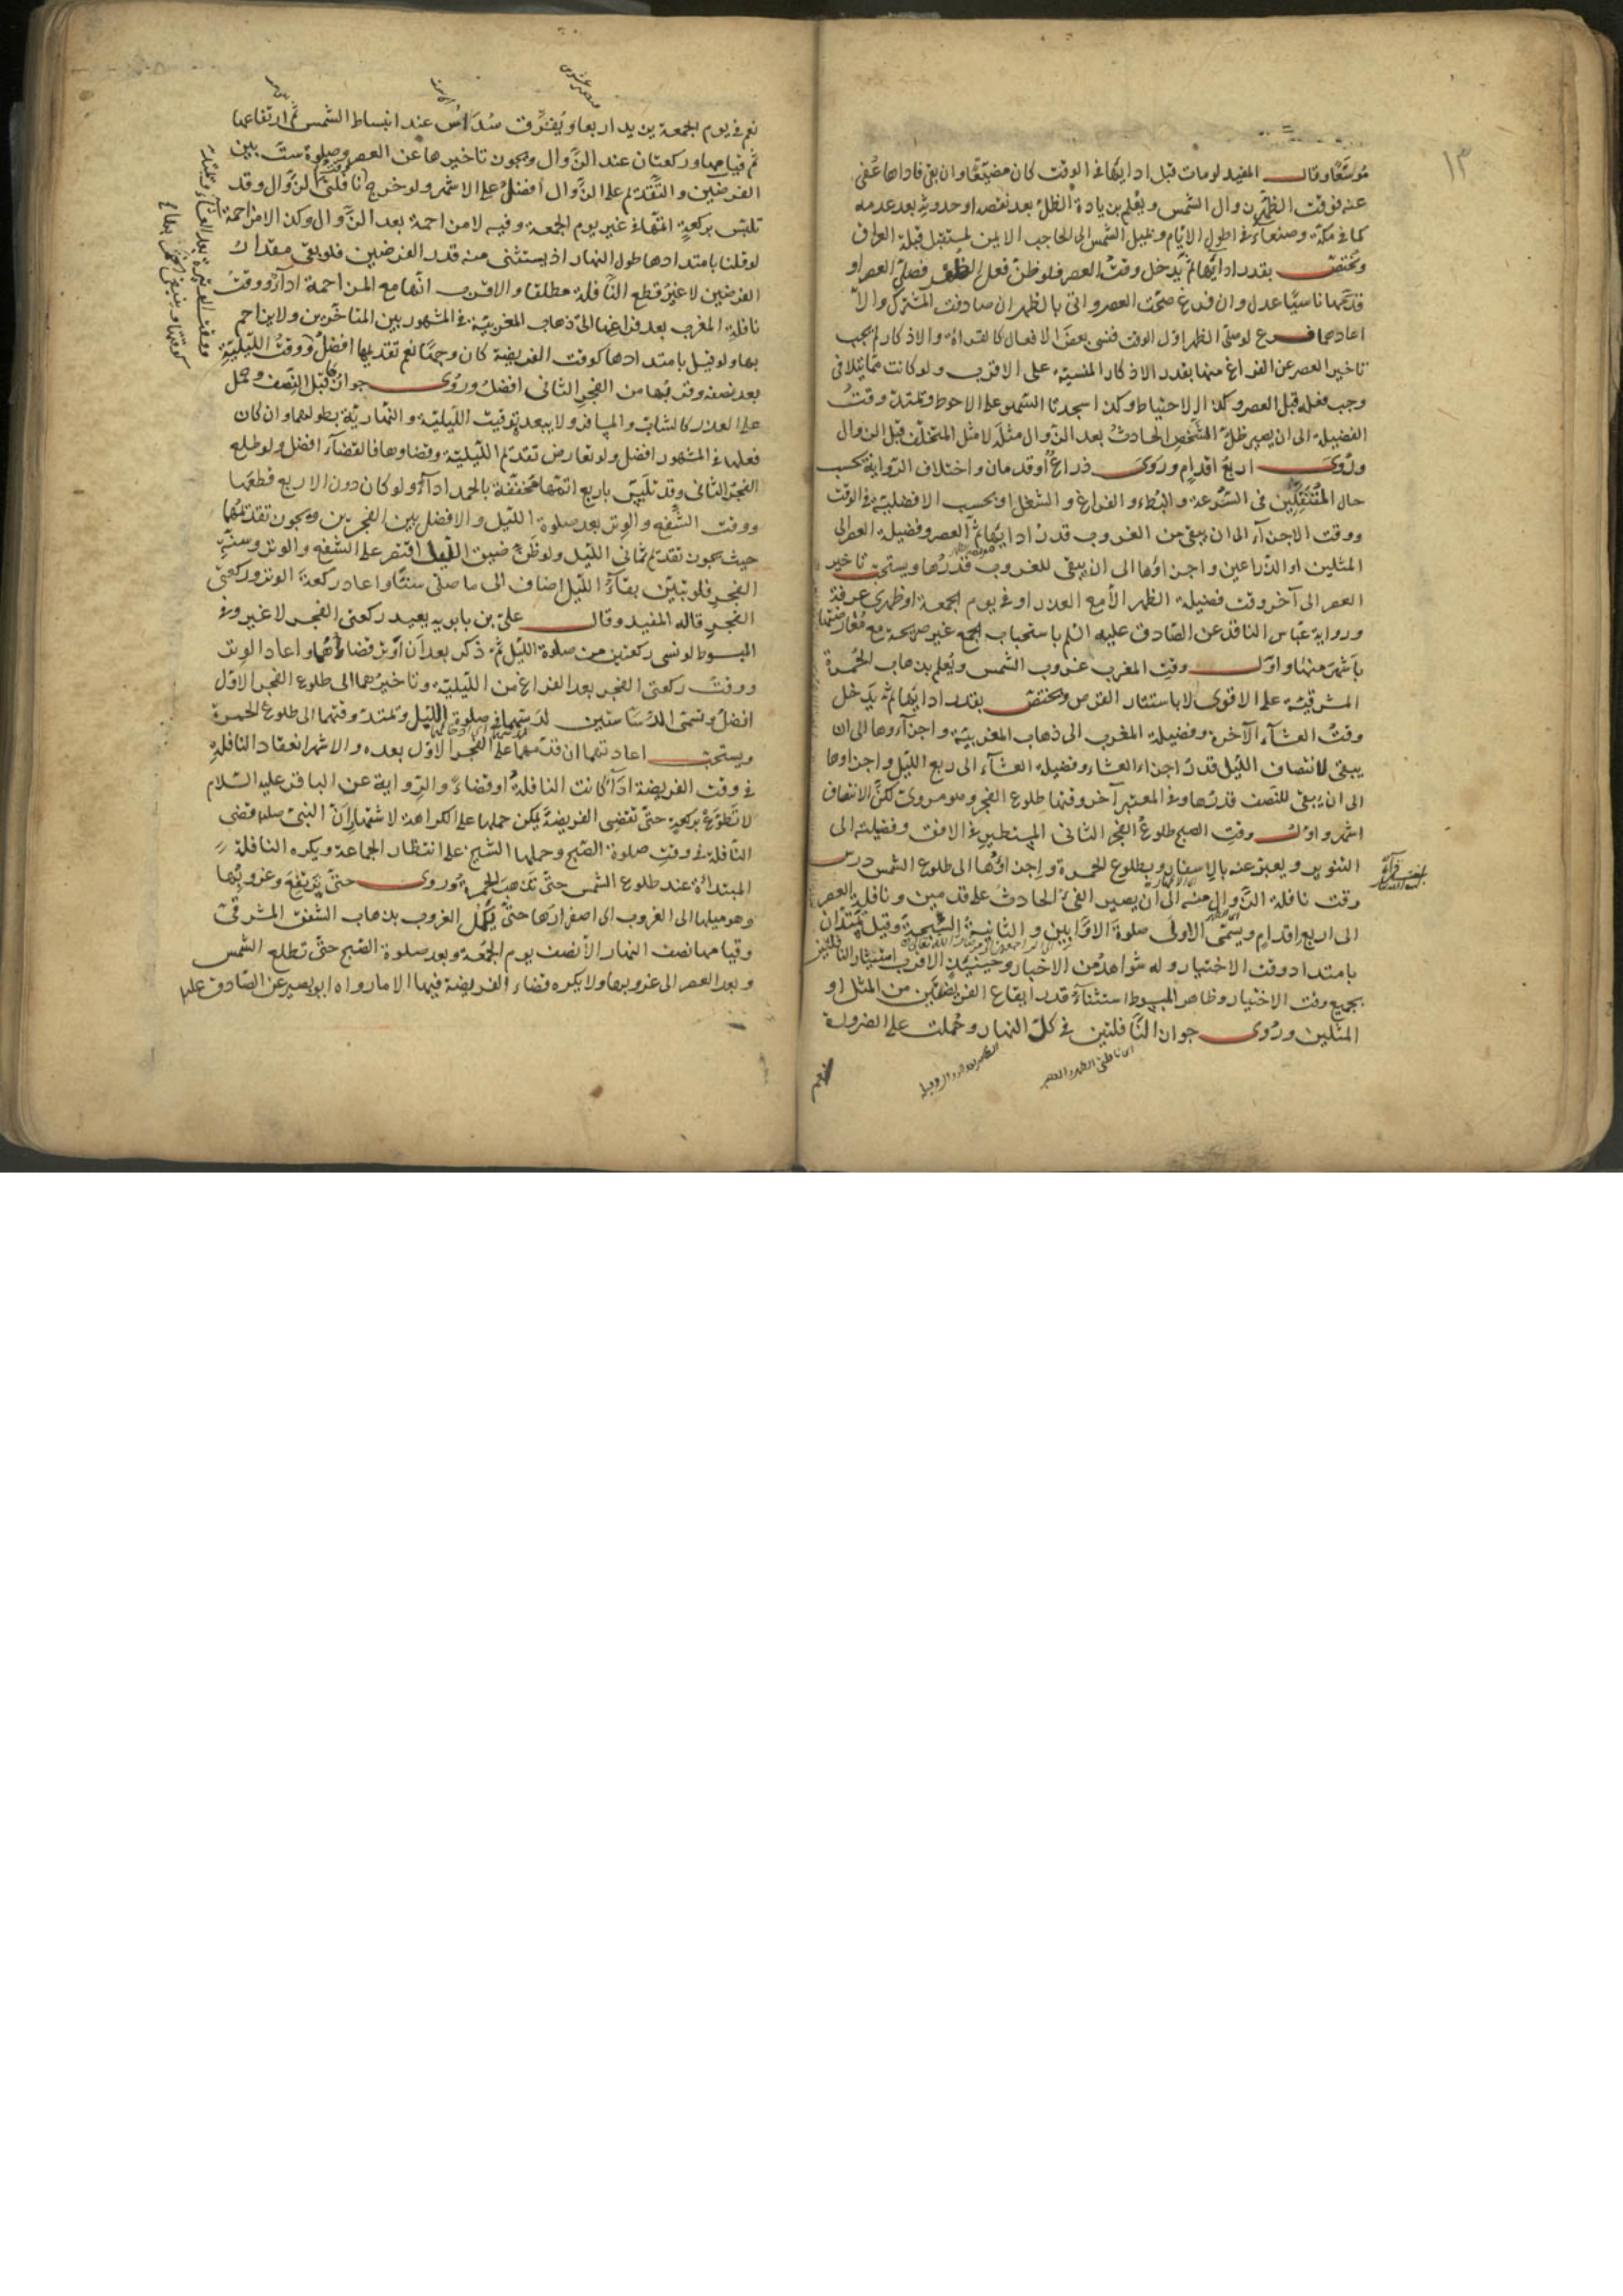 ١٣
موسّعًا وقال المفيد لو مات قبل ادايها في الوقت كان مضيّعًا وان بقي فاداها عُفي
عنه فوقت الظهر زوال الشمس ويُعلم بزيادة الظلّ بعد نقصه او حدوثه بعد عدمه
كما في مكة وصنعاء في اطول الايّام وبميل الشمس الى الحاجب الايمن لمستقبل قبلة العراق
وتختصّ بقدر ادايها ثمّ يدخل وقتُ العصر فلو ظنّ فعل الظهر فصلّى العصر او
قدّمها ناسيًا عدل وان فرغ صحّت العصر واتى بالظهر ان صادفت المشترك والّا
اعادهما فرع لو صلّى الظهر اوّل الوقت فنسي بعضَ الافعال كالقراءة والاذكار لم يجب
تاخير العصر عن الفراغ منها بقدر الاذكار المنسيّة على الاقرب ولو كانت ممّا يتلافى
وجب فعله قبل العصر وكذا الاحتياط وكذا سجدتا السهو على الاحوط ويمتدّ وقتُ
الفضيلة الى ان يصير ظلّ الشخص الحادثُ بعد الزّوال مثلَه لا مثل المتخلّف قبل الزوال
ورُوي اربعُ اقدامٍ ورُوي ذراعٌ او قدمان واختلاف الرّواية بحسب
حال المُتَنفّلين في السّرعة والبُطء والفراغ والشغل او بحسب الافضلية في الوقت
ووقت الاجزاء الى ان يبقى من الغروب قدرُ ادايها ثمّ العصر وفضيلة العصر الى
المثلين او الذّراعين واجزاؤها الى ان يبقى للغروب قدرُها ويستحبّ تاخير
العصر الى آخر وقت فضيلة الظهر الّا مع العذر او في يوم الجمعة او ظهري عرفة
ورواية عبّاس الناقد عن الصّادق عليه السّلم باستحباب الجمع غير صريحة مع مُعارضتها
باشهرَ منها واوّل وقت المغرب غروب الشمس ويُعلم بذهاب الحُمرة
المشرقيّة على الاقوى لا باستتار القرص وتختصّ بقدر ادايها ثمّ يدخل
وقتُ العشاء الآخرة وفضيلة المغرب الى ذهاب المغربيّة واجزاءوها الى ان
يبقى لانتصاف الليل قدرُ اجزاء العشاء وفضيلة العشاء الى ربع الليل واجزاوها
الى ان يبقى للنّصف قدرُها وفي المعتبر آخر وقتها طلوع الفجر وهو مرويّ لكنّ الانتصاف
اشهر واوّل وقت الصبح طلوعُ الفجر الثاني المستطير في الافق وفضيلته الى
التنوير ويعبّر عنه بالاسفار وبطلوع الحمرة واجزاؤها الى طلوع الشمس درس
وقت نافلة الزّوال منه الى ان يصير الفيءُ الحادث على قدمين ونافلة العصر
الى اربع اقدام ويسمّى الاولى صلوةَ الاوّابين والثانية السُّبحة وقيل تمتدّان
بامتداد وقت الاختيار وله شواهدُ من الاخبار وحينئذٍ الاقرب استيثار النافلتين
بجميع وقت الاختيار وظاهر المبسوط استثناءُ قدر ايقاع الفريضتين من المثل او
المثلين ورُوي جواز النّافلتين في كلّ النهار وحُملت على الضرورة
نعم
نعم في يوم الجمعة يزيد اربعا ويُفرّق سُدَاسُ عند انبساط الشمس ثم ارتفاعها
ثم قيامها وركعتان عند الزّوال ويجوز تاخيرها عن العصر وصلوة ستّ بين
الفرضين والتّقديم على الزّوال افضلُ على الاشهر ولو خرج وقت نافلتي الزّوال وقد
تلبّس بركعةٍ اتمّها في غير يوم الجمعة وفيه لا مزاحمة بعد الزّوال وكذا لا مزاحمة
لو قلنا بامتدادها طول النهار اذ يستثنى منه قدر الفرضين فلو بقي مقدارُ
الفرضين لا غيرُ قطع النّافلة مطلقا والاقرب انها مع المزاحمة اداءٌ ووقتُ
نافلة المغرب بعد فراغها الى ذهاب المغربيّة في المشهور بين المتاخّرين ولا يزاحم
بها ولو قيل بامتدادها كوقت الفريضة كان وجهًا نعم تقديمها افضلُ ووقتُ الليليّة
بعد نصفه وقربُها من الفجر الثاني افضلُ ورُوي جوازُها قبل النّصف وحمل
على العذر كالشابّ والمسافر ولا يبعد توقيت الليليّة والنهاريّة بطولهما وان كان
فعلها في المشهور افضل ولو تعارض تقديم الليليّة وقضاوها فالقضاء افضل ولو طلع
الفجر الثاني وقد تلبّس باربع اتمّها مخفّفة بالحمد اداءً ولو كان دون الاربع قطعها
ووقت الشّفع والوتر بعد صلوة الليل والافضل بين الفجرين ويجوز تقديمهما
حيث يجوز تقديم ثماني الليل ولو ظنّ ضيق الليل اقتصر على الشفع والوتر وسنّة
الفجر فلو تبيّن بقاءُ الليل اضاف الى ما صلّى ستًّا واعاد ركعة الوتر وركعتي
الفجر قاله المفيد وقال عليّ بن بابويه يعيد ركعتي الفجر لا غير وفي
المبسوط لو نسي ركعتين من صلوة الليل ثمّ ذكر بعد ان اوتر قضاهما واعاد الوتر
ووقتُ ركعتي الفجر بعد الفراغ من الليليّة وتاخيرُهما الى طلوع الفجر الاوّل
افضلُ وتسمّى الدّسّاستين لدسّهما في صلوة الليل ويمتدّ وقتهما الى طلوع الحمرة
ويستحبّ اعادتهما ان قدّمهما على الفجر الاوّل بعده والاشهر انعقاد النافلة
في وقت الفريضة اداءً كانت النافلةُ او قضاءً والرّواية عن الباقر عليه السّلام
لا تَطوّعْ بركعةٍ حتّى تقضي الفريضةَ يمكن حملها على الكراهة لاشتهار انّ النبيّ صلعم قضى
النّافلة في وقت صلوة الصّبح وحملها الشيخ على انتظار الجماعة ويكره النافلة
المبتدأة عند طلوع الشمس حتّى تذهب الحُمرة ورُوي حتّى يرتفع وغروبُها
وهو ميلها الى الغروب اي اصفرارُها حتّى يكمل الغروب بذهاب الشفق المشرقيّ
وقيامها نصف النهار الّا نصف يوم الجُمُعة وبعد صلوة الصّبح حتّى تطلع الشمس
وبعد العصر الى غروبها ولا يكره قضاء الفريضة فيها الا ما رواه ابو بصير عن الصّادق عليه